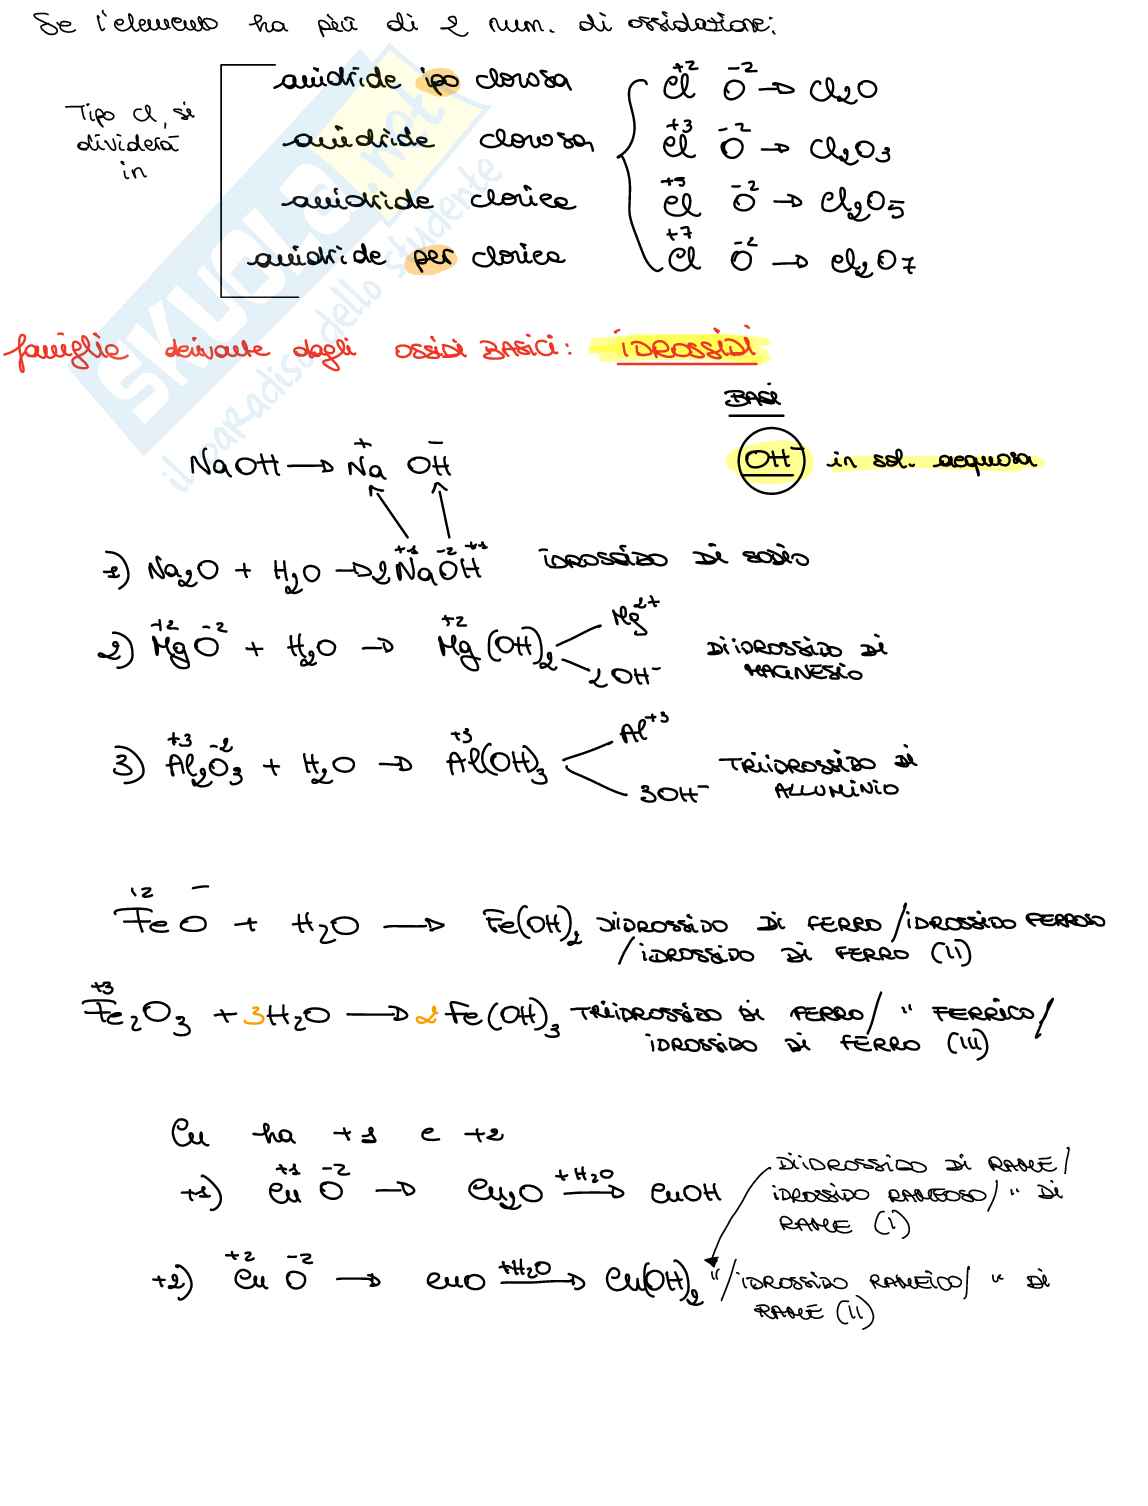 Se l'elemento ha più di 2 num. di ossidazione:
Tipo Cl, si dividerà in
anidride ipo clorosa
+2 -2
Cl O → Cl2O
anidride clorosa
+3 -2
Cl O → Cl2O3
anidride clorica
+5 -2
Cl O → Cl2O5
anidride per clorica
+7 -2
Cl O → Cl2O7
SKUOLA.net
il paradiso dello studente
famiglia derivante dagli OSSIDI BASICI: IDROSSIDI
BASI
OH⁻ in sol. acquosa
NaOH → Na⁺ OH⁻
+1 -2 +1
1) Na2O + H2O → 2NaOH IDROSSIDO DI SODIO
+2 -2 +2
2) MgO + H2O → Mg(OH)2 Mg2+ 2OH⁻ DIIDROSSIDO DI MAGNESIO
+3 -2 +3
3) Al2O3 + H2O → Al(OH)3 Al+3 3OH⁻ TRIIDROSSIDO DI ALLUMINIO
+2 -
FeO + H2O → Fe(OH)2 DIIDROSSIDO DI FERRO/IDROSSIDO FERROSO
/IDROSSIDO DI FERRO (II)
+3
Fe2O3 + 3H2O → 2Fe(OH)3 TRIIDROSSIDO DI FERRO/ " FERRICO/
IDROSSIDO DI FERRO (III)
Cu ha +1 e +2
+1 -2
+1) Cu O → Cu2O +H2O → CuOH
DIIDROSSIDO DI RAME/
IDROSSIDO RAMEOSO/ " DI
RAME (I)
+2 -2
+2) Cu O → CuO +H2O → Cu(OH)2 "/IDROSSIDO RAMEICO/ " DI
RAME (II)